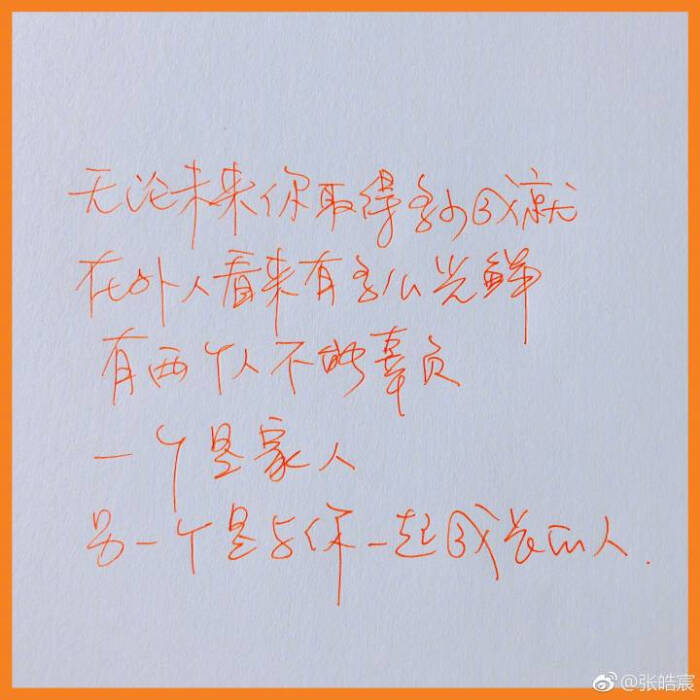 无论未来你取得多少成就
在外人看来有多么光鲜
有两个人不能辜负
一个是家人
另一个是与你一起成长的人.
@张皓宸